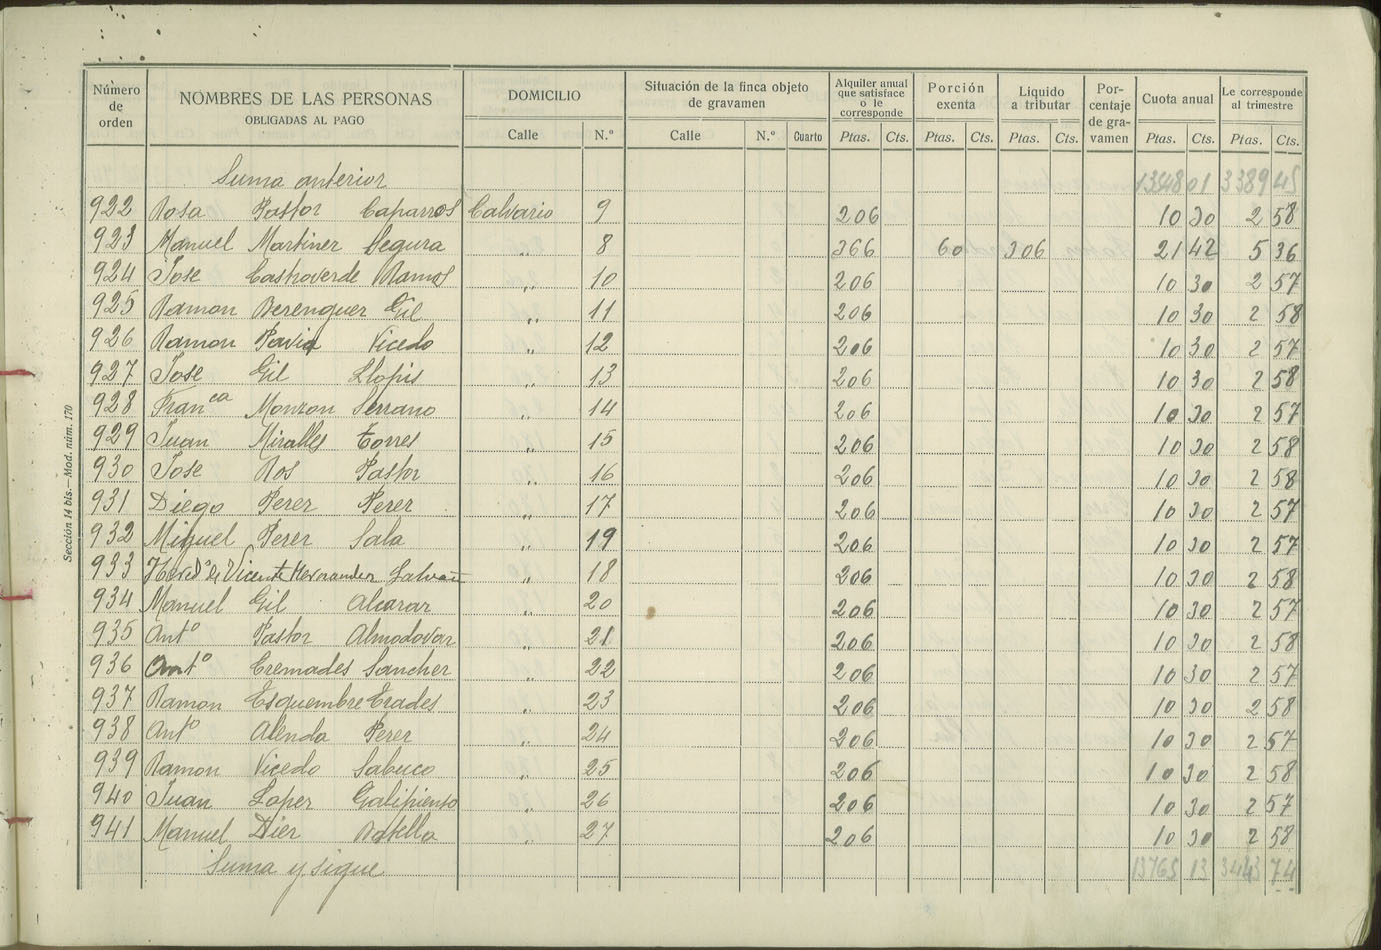 Número de orden NOMBRES DE LAS PERSONAS OBLIGADAS AL PAGO DOMICILIO Situación de la finca objeto de gravamen Alquiler anual que satisface o le corresponde Porción exenta Líquido a tributar Por-centaje de gra-vamen Cuota anual Le corresponde al trimestre
Calle N.º Calle N.º Cuarto Ptas. Cts. Ptas. Cts. Ptas. Cts. Ptas. Cts. Ptas. Cts.
Suma anterior 13548 01 3389 45
922 Rosa Pastor Caparros Calvario 9 206 10 30 2 58
923 Manuel Martinez Segura " 8 366 60 306 21 42 5 36
924 Jose Castroverde Ramos " 10 206 10 30 2 57
925 Ramon Berenguer Gil " 11 206 10 30 2 58
926 Ramon Pavia Vicedo " 12 206 10 30 2 57
927 Jose Gil Llopis " 13 206 10 30 2 58
928 Franca Monzon Serrano " 14 206 10 30 2 57
929 Juan Miralles Torres " 15 206 10 30 2 58
930 Jose Ros Pastor " 16 206 10 30 2 58
931 Diego Perez Perez " 17 206 10 30 2 57
932 Miguel Perez Sala " 19 206 10 30 2 57
933 Hered.s de Vicente Hernandez " 18 206 10 30 2 58
934 Manuel Gil Alcaraz " 20 206 10 30 2 57
935 Antº Pastor Almodovar " 21 206 10 30 2 58
936 Antº Cremades Sanchez " 22 206 10 30 2 57
937 Ramon Esquembre Erades " 23 206 10 30 2 58
938 Antº Alenda Perez " 24 206 10 30 2 57
939 Ramon Vicedo Sabuco " 25 206 10 30 2 58
940 Juan Lopez Galipienso " 26 206 10 30 2 57
941 Manuel Diez Botella " 27 206 10 30 2 58
Suma y sigue 13765 13 3443 74
Sección 14 bis.—Mod. núm. 170